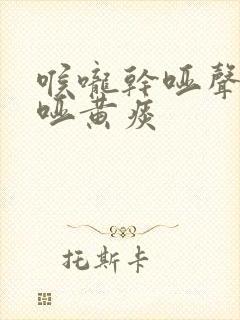 喉嚨幹啞聲
啞黃痰
托斯卡